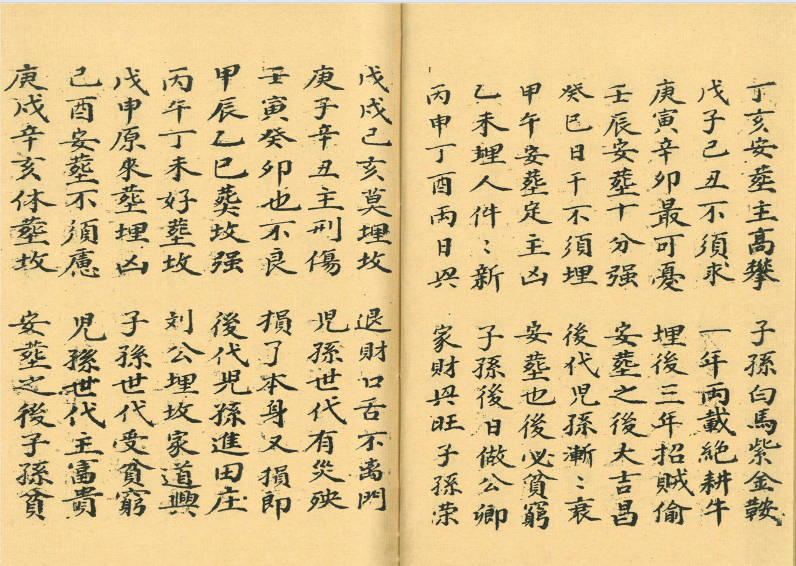 丁亥安塟主高攀 子孫白馬紫金鞍
戊子己丑不須求 一年両載絶耕牛
庚寅辛卯最可憂 埋後三年招賊偷
壬辰安塟十分強 安塟之後大吉昌
癸巳日干不須埋 後代児孫漸〻衰
甲午安塟定主凶 安塟也後必貧窮
乙未埋人件〻新 子孫後日做公卿
丙申丁酉両日 家財旺子孫荣
戊戌己亥莫埋坟 退財口舌不离門
庚子辛丑主刑傷 児孫世代有災殃
壬寅癸卯也不良 損了本身又損即
甲辰乙巳葬坟强 後代児孫進田庄
丙午丁未好塟坟 刘公埋坟家道興
戊申原來塟埋凶 子孫世代受貧窮
己酉安塟不須慮 児孫世代主富貴
庚戌辛亥休塟坟 安塟之後子孫貧